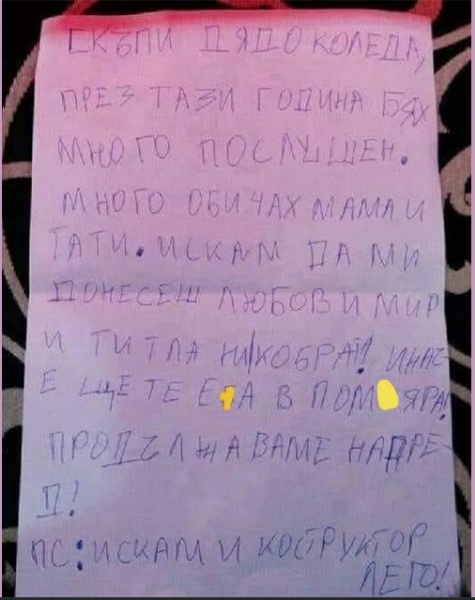 СКЪПИ ДЯДО КОЛЕДА,
ПРЕЗ ТАЗИ ГОДИНА БЯХ
МНОГО ПОСЛУШЕН.
МНОГО ОБИЧАХ МАМА И
ТАТИ. ИСКАМ ДА МИ
ДОНЕСЕШ ЛЮБОВ И МИР
И ТИТЛА ИНАЧ-
Е ЩЕ ТЕ В
ПРОДЪЛЖАВАМЕ НАПРЕ-
Д!
ПС: ИСКАМ И КОСТРУКТОР
ЛЕГО!